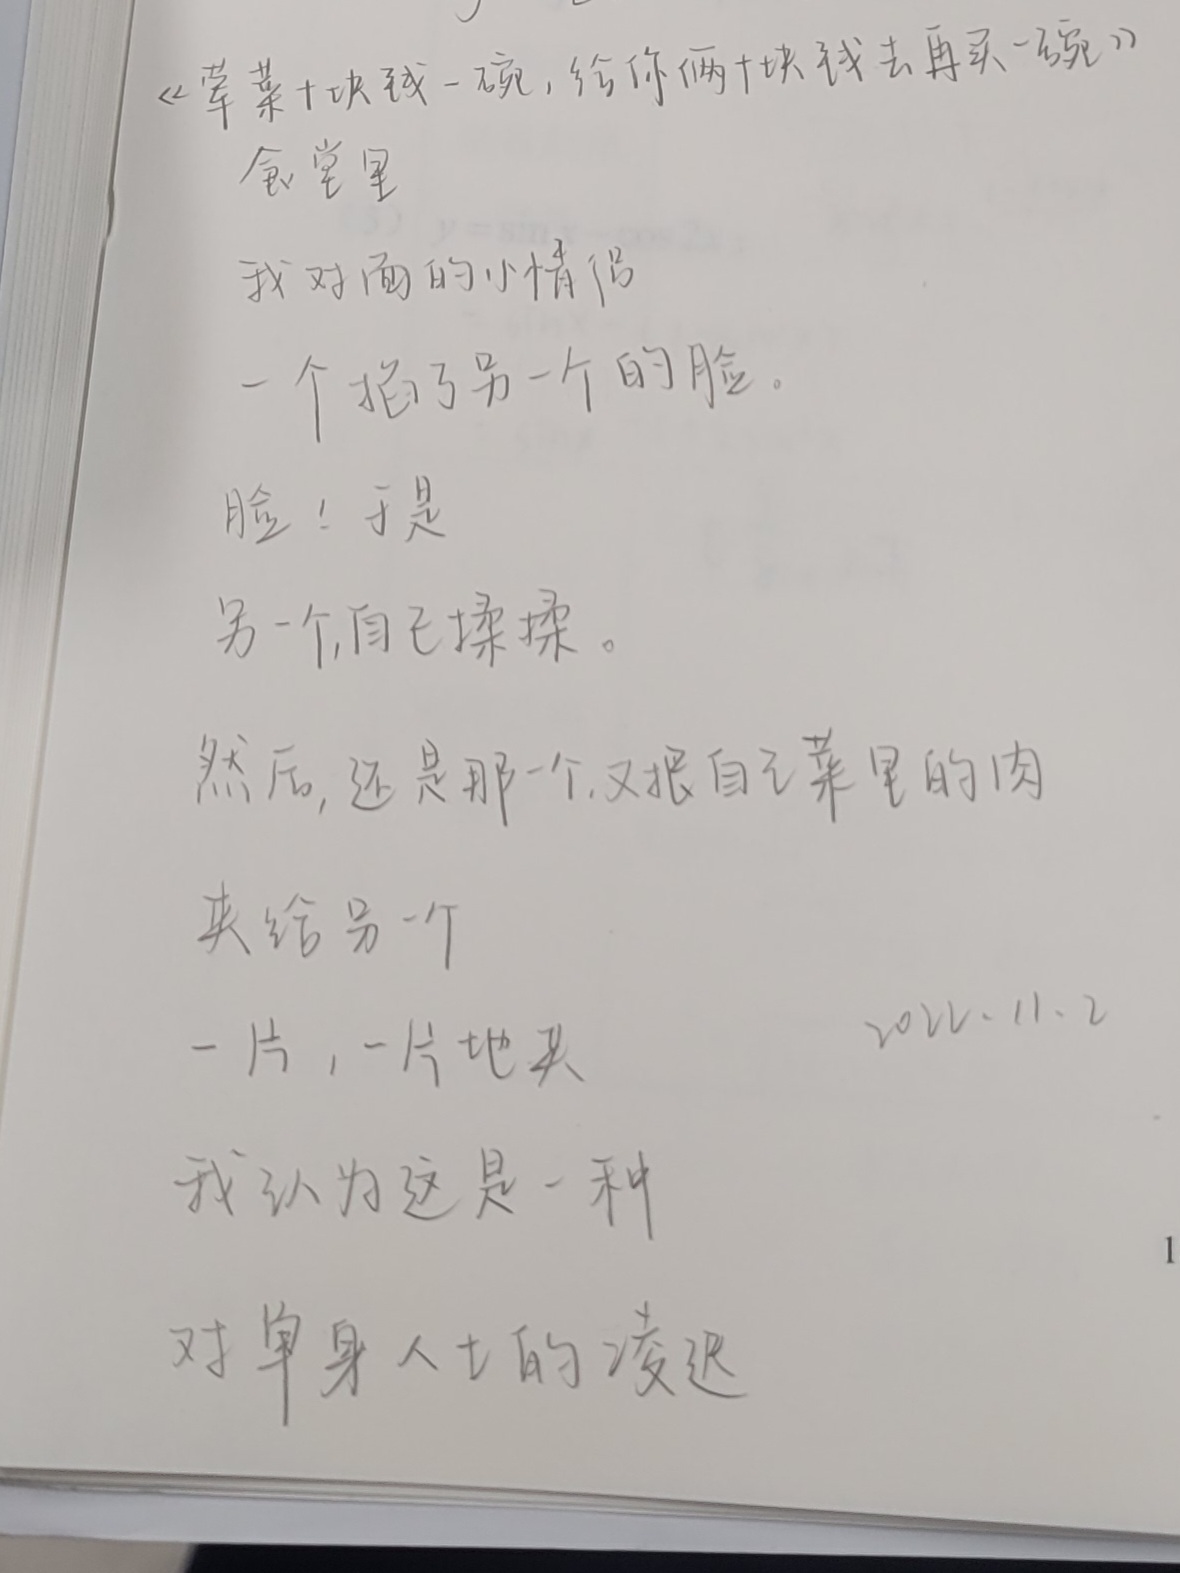 《荤菜十块钱一碗，给你俩十块钱去再买一碗》
食堂里
我对面的小情侣
一个掐了另一个的脸。
脸！于是
另一个,自己揉揉。
然后,还是那一个,又把自己菜里的肉
夹给另一个
一片，一片地夹
2022.11.2
我认为这是一种
1
对单身人士的凌迟